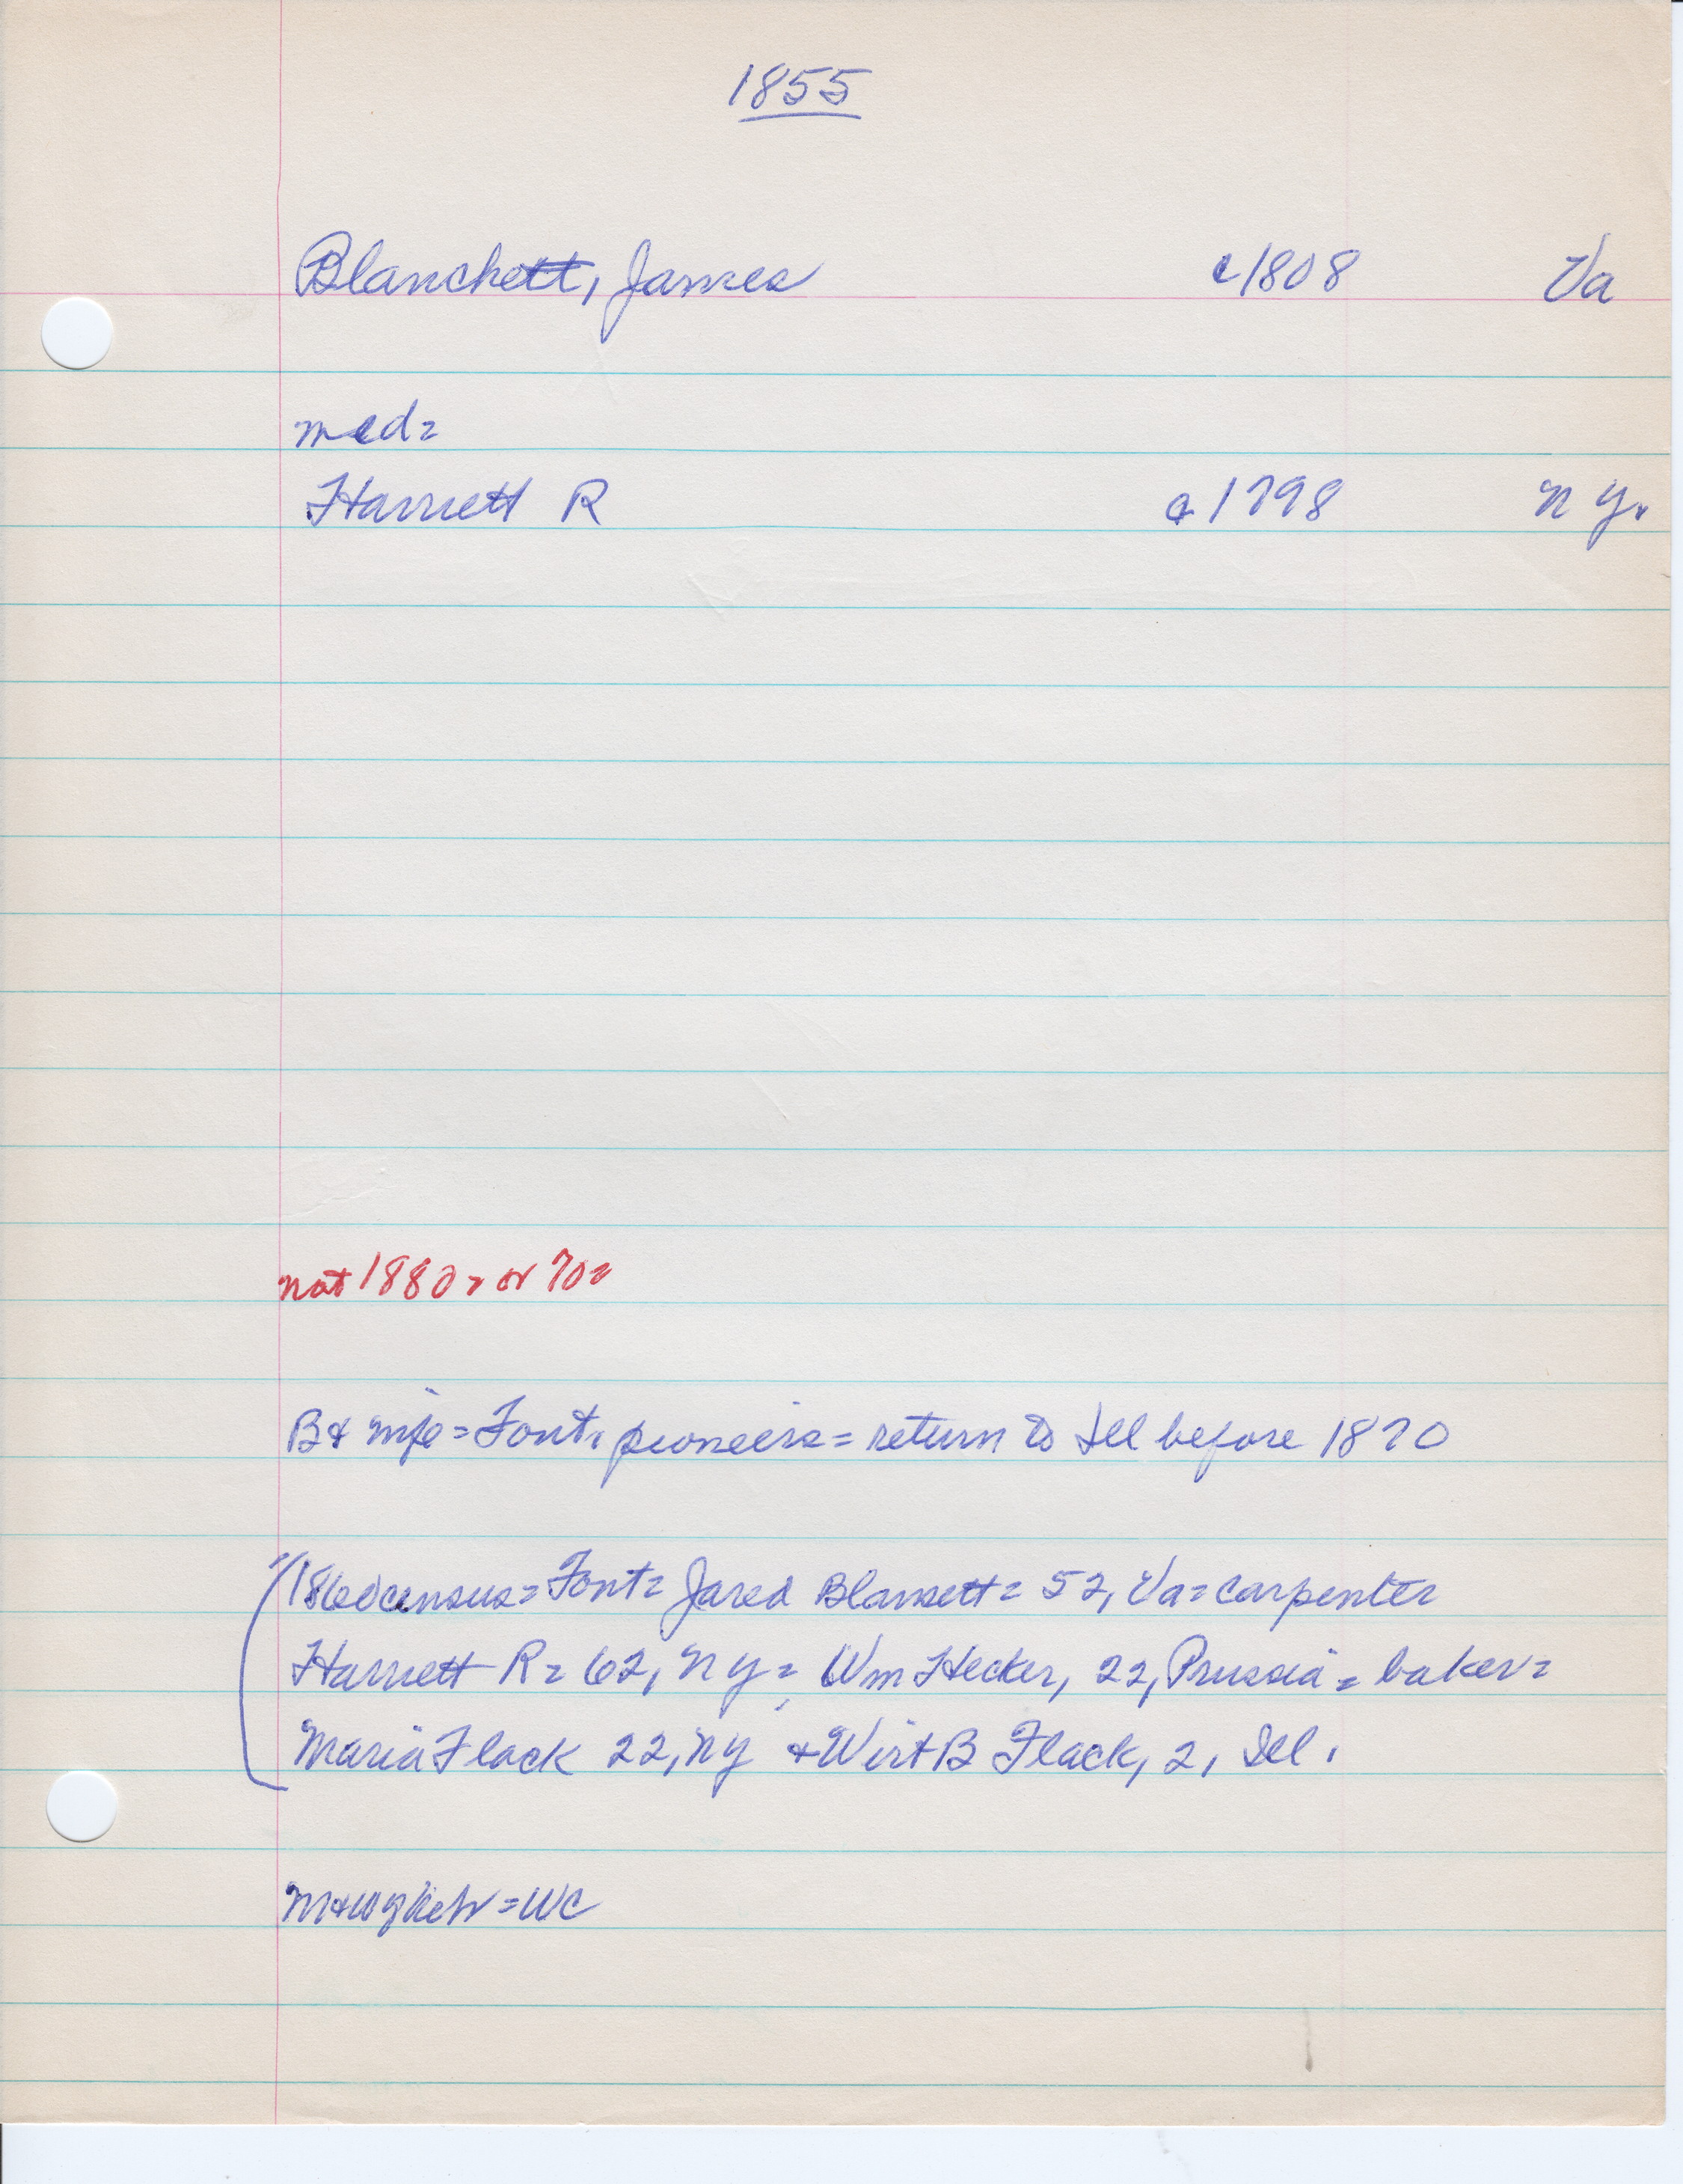 1855
Blanchett, James c1808 Va
med=
Harriett R c1798 N Y.
not 1880= or 70=
B & wife = Font. pioneers = return to Ill before 1870
"1860 census = Font = Jared Blansett = 52, Va = carpenter
Harriett R = 62, NY = Wm Hecker, 22, Prussia = baker =
Maria Flack 22, NY + Wirt B Flack, 2, Ill.
= WC